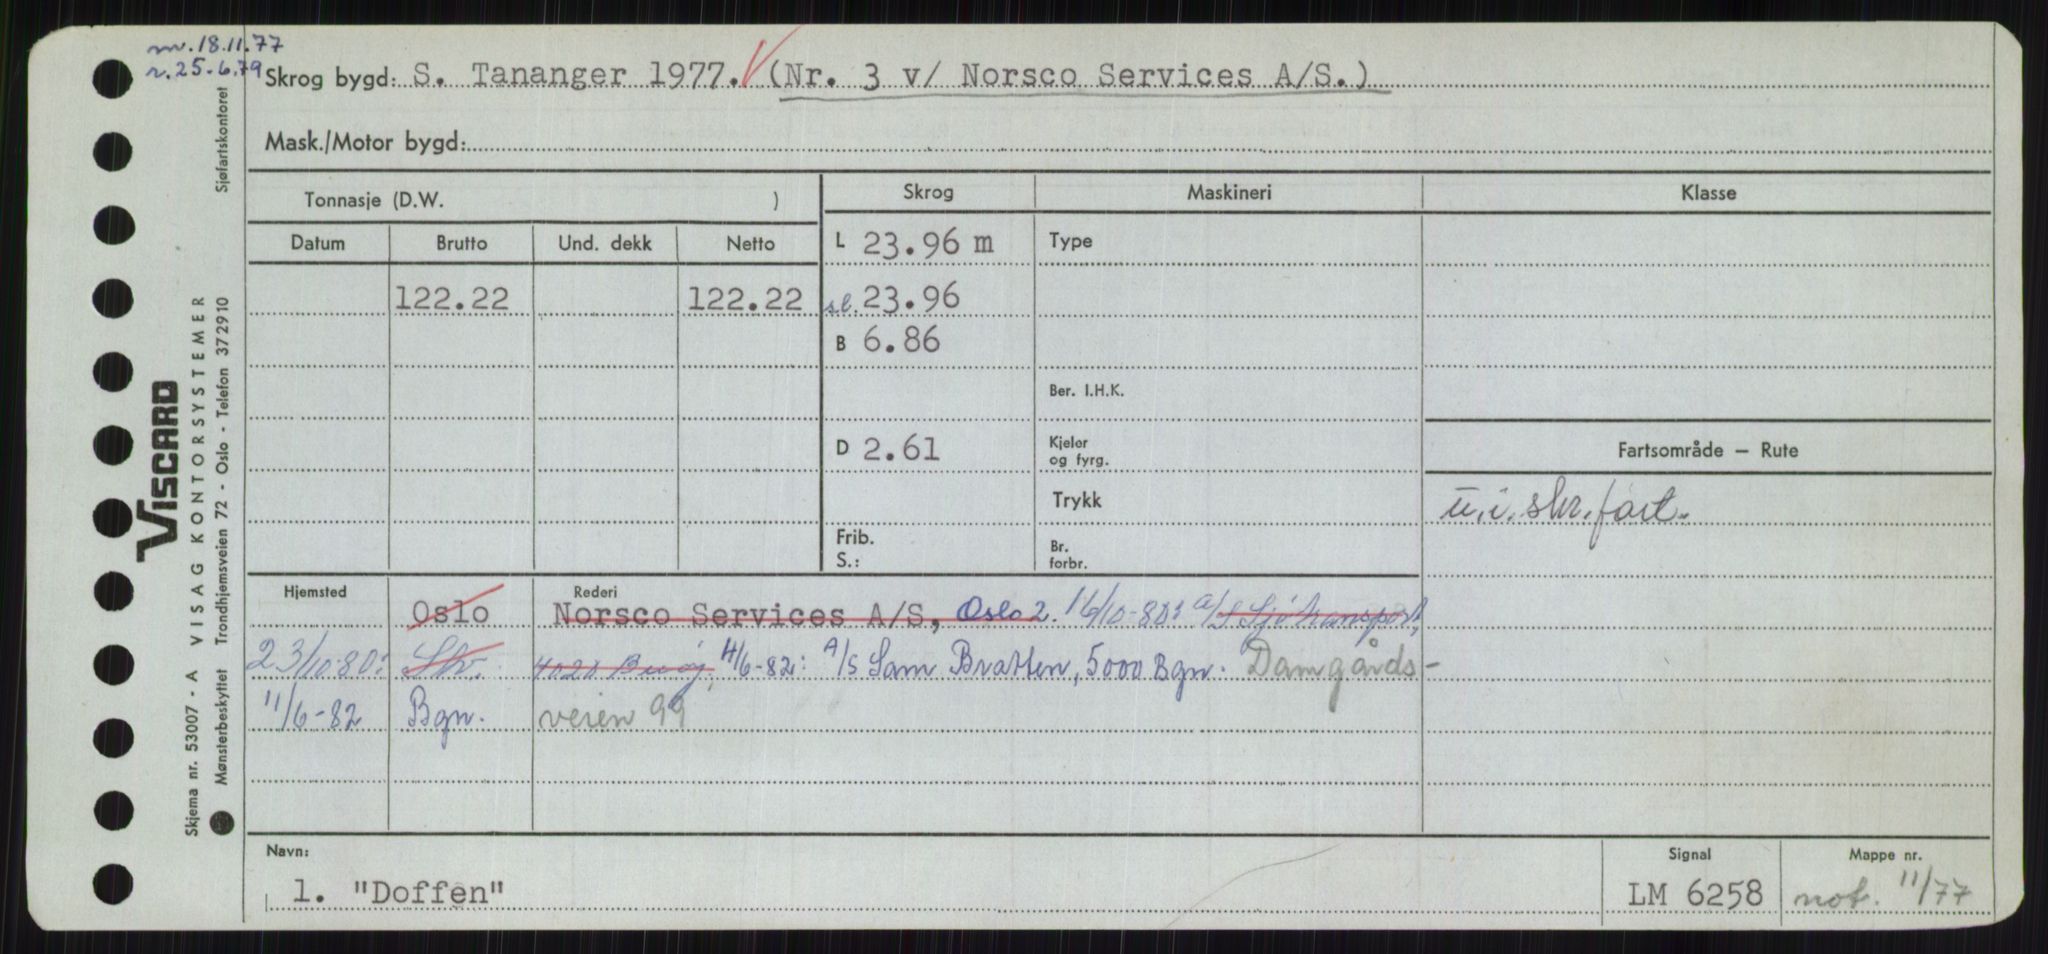 nv. 18.11.77
r. 25.6.79
Skrog bygd: S. Tananger 1977. (Nr. 3 v/ Norsco Services A/S.)
Mask./Motor bygd:
Tonnasje (D.W. )
Skrog
Maskineri
Klasse
Datum
Brutto
Und. dekk
Netto
L 23.96 m
Type
122.22
122.22
sl. 23.96
B 6.86
Ber. I.H.K.
D 2.61
Kjeler
og fyrg.
Fartsområde — Rute
Trykk
u.i. skr. fart.
Frib.
S.:
Br.
forbr.
Hjemsted
Rederi
Oslo
Norsco Services A/S, Oslo 2. 16/10-80: A/S Sjøtransport,
23/10-80: Skv.
4020 11/6-82: A/S Sam Bratten, 5000 Bgn. Damgårds-
11/6-82 Bgn.
veien 99
Navn:
1. "Doffen"
Signal
LM 6258
Mappe nr.
not. 11/77
Sjøfartskontoret
VISCARD
VISAG KONTORSYSTEMER
Trondhjemsveien 72 - Oslo - Telefon 372910
Skjema nr. 53007 - A
Mønsterbeskyttet